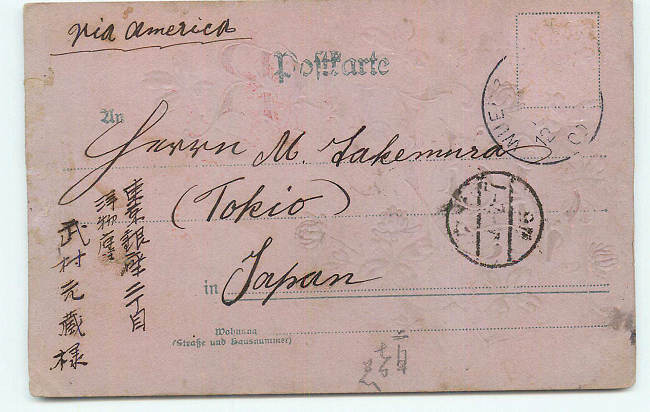 via America
Postkarte
An
Herrn M. Takemura
(Tokio)
in Japan
Wohnung
(Straße und Hausnummer)
東京銀座二丁目
洋物店
武村元蔵様